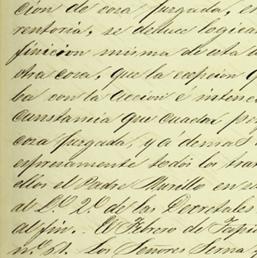 cion de cosa juzgada, en
rentoria, se deduce logica
finicion misma de esta
otra cosa, que la escpcion q
ba con la accion é intenc
cunstancia que cuadra per
cosa juzgada, y á demas
espresamente todos los tra
ellos el Padre Murillo en
al L.º 2.º de las Decretales
al fin. El Febrero de Tapi
n.º 51. Los Señores Serna y